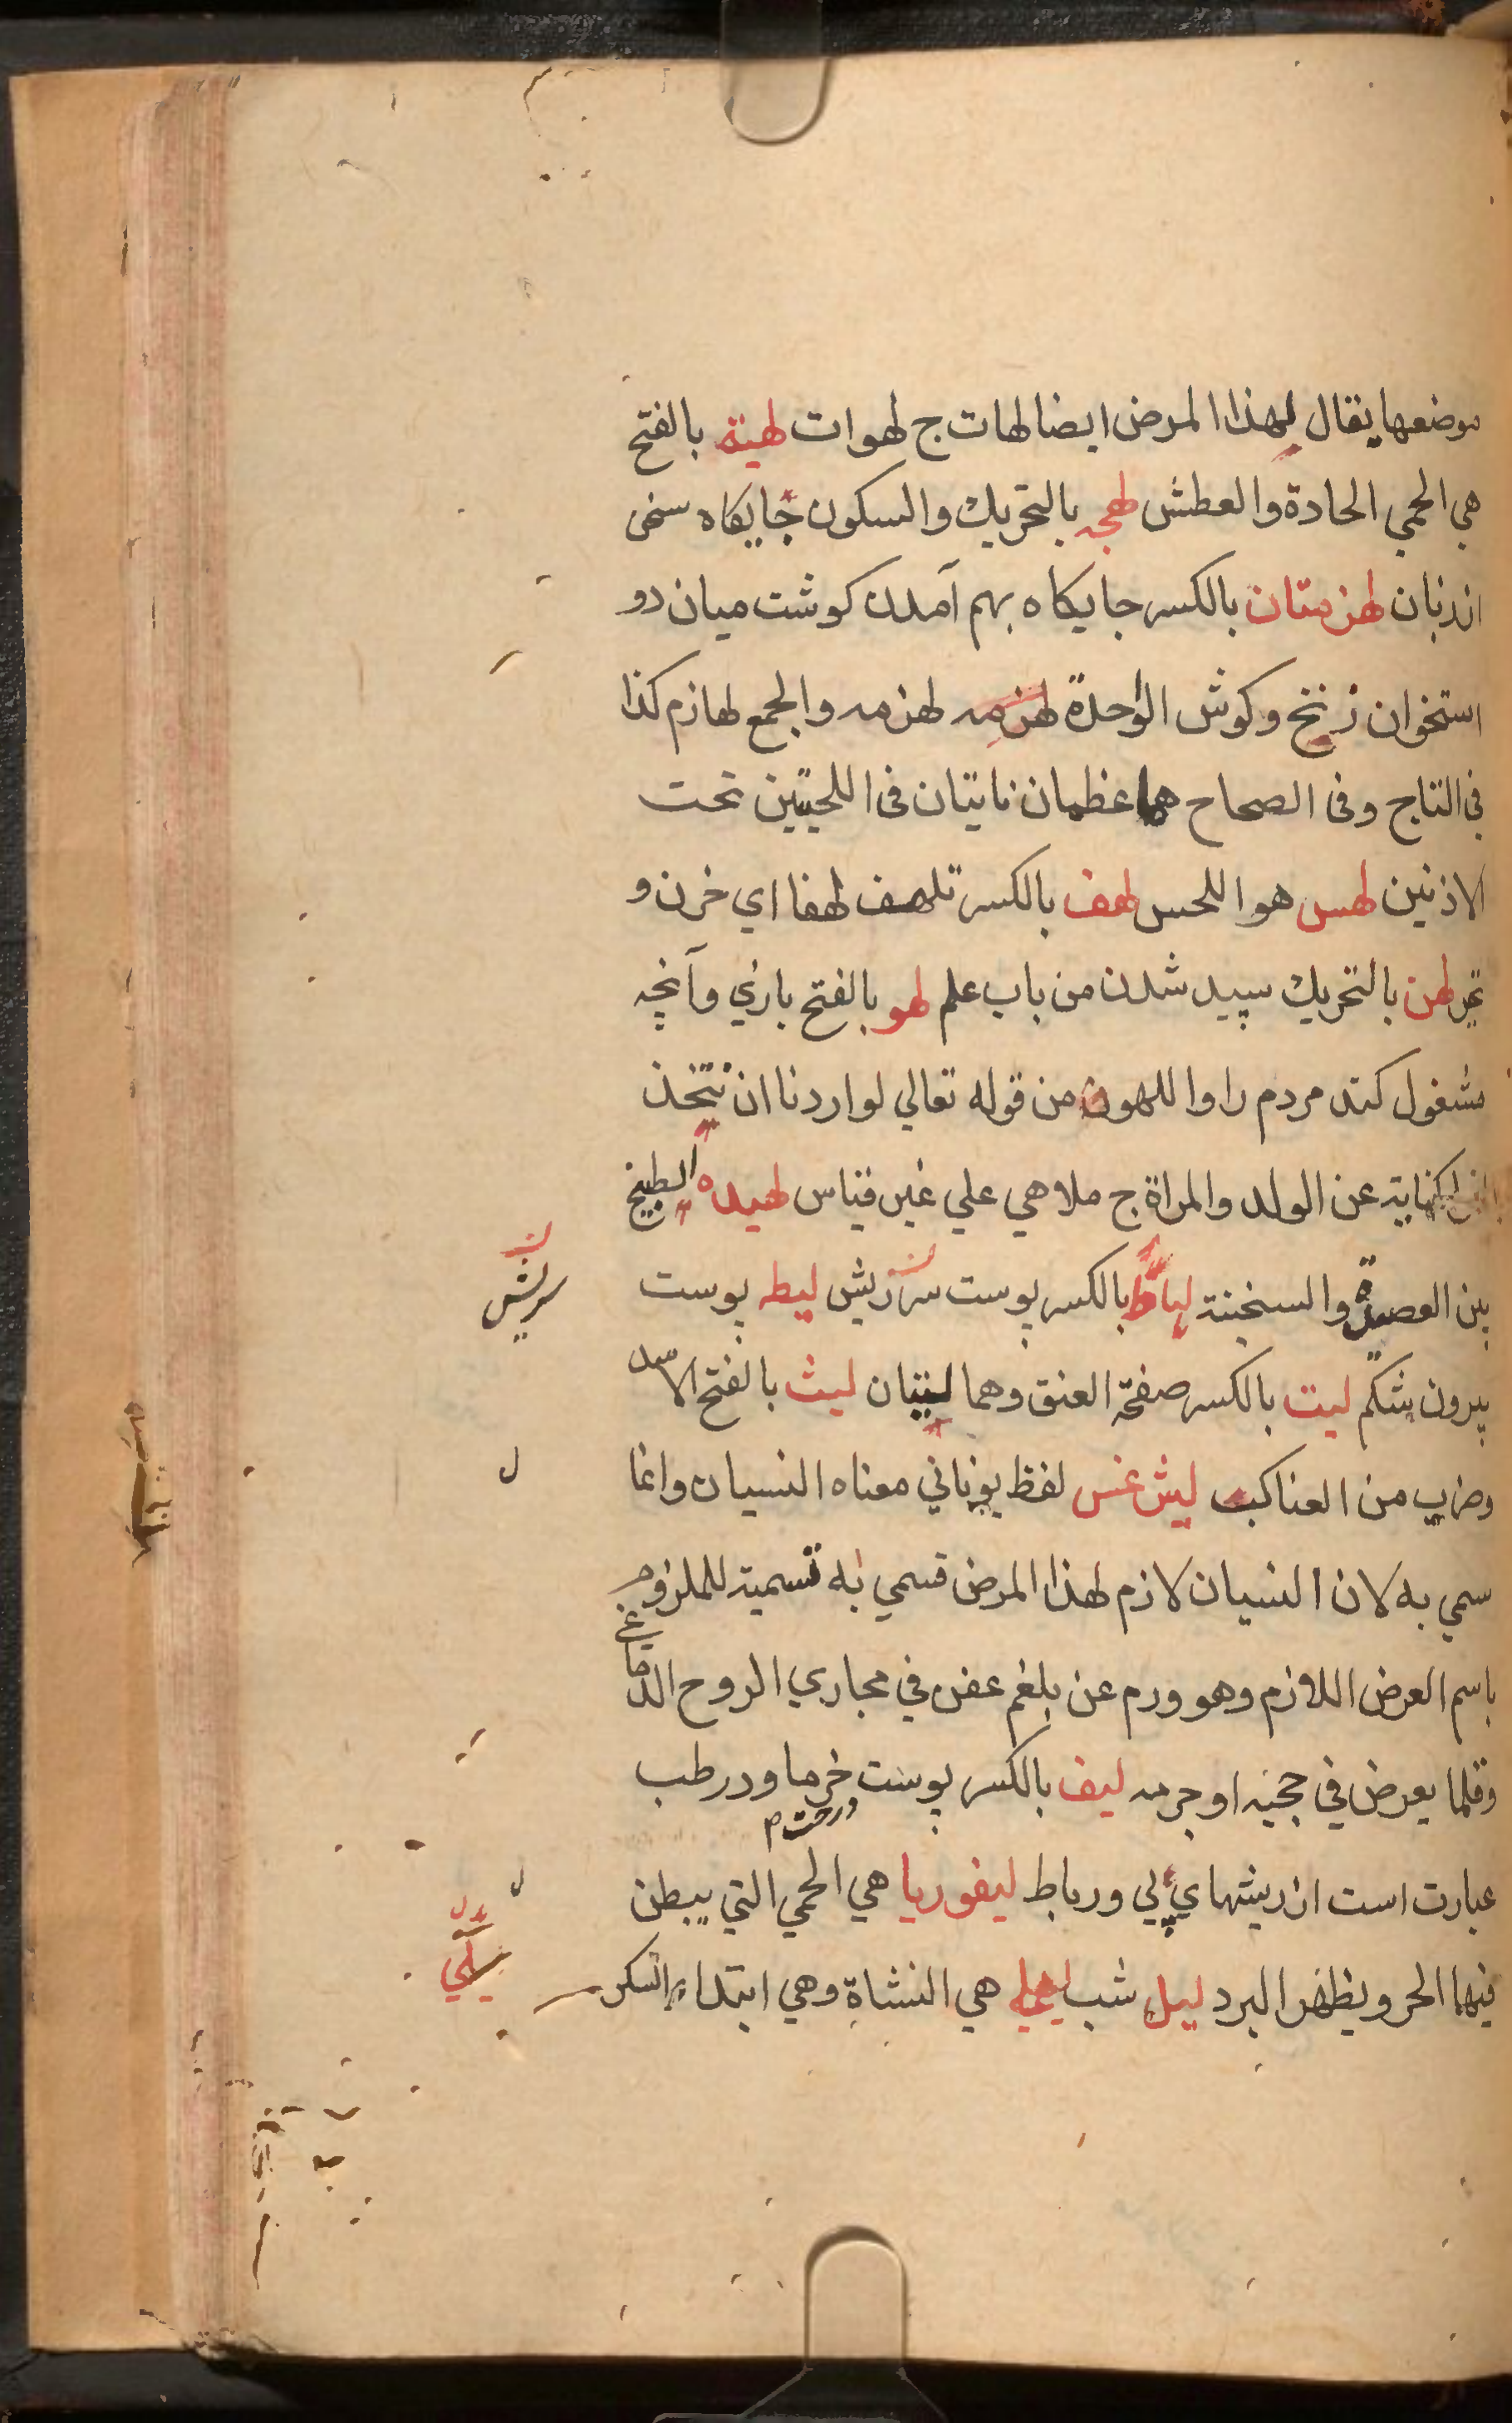 موضعها يقال لهذا المرض ايضا لهات ج لهوات لهبة بالفتح
هي الحمي الحادة والعطش لهجه بالتحريك والسكون جايكاه سخن
از زبان لهزمتان بالكسر جايكاه بهم آمدن كوشت ميان دو
استخوان زنخ وكوش الواحدة لهزمه لهزمه والجمع لهازم كذا
في التاج وفي الصحاح هما عظمان ناتيان في اللحيين تحت
الاذنين لهس هو اللحس لهف بالكسر تلهف لهفا اي حزن و
لهن بالتحريك سپيد شدن من باب علم لهو بالفتح بازي وآنچه
مشغول كند مردم را واللهو من قوله تعالي لو اردنا ان نتخذ
كناية عن الولد والمراة ج ملاهي علي غير قياس لهيده الطبيخ
بين العصيدة والسخينة لياط بالكسر پوست سرزيش ليطه پوست
سريش
بيرون شكم ليت بالكسر صفحة العنق وهما ليتان ليث بالفتح الاسد
وضرب من العناكب ليثرغس لفظ يوناني معناه النسيان وانما
ل
سمي به لان النسيان لازم لهذا المرض فسمي به تسمية للملزوم
باسم العرض اللازم وهو ورم عن بلغم عفن في مجاري الروح الدماغي
وقلما يعرض في حجبه او جرمه ليف بالكسر پوست درخت خرما ودر طب
عبارت است از ريشهاي پي ورباط ليفوريا هي الحمي التي يبطن
ل
فيها الحر ويظهر البرد ليل شب ليلي هي النشاة وهي ابتداء السكر